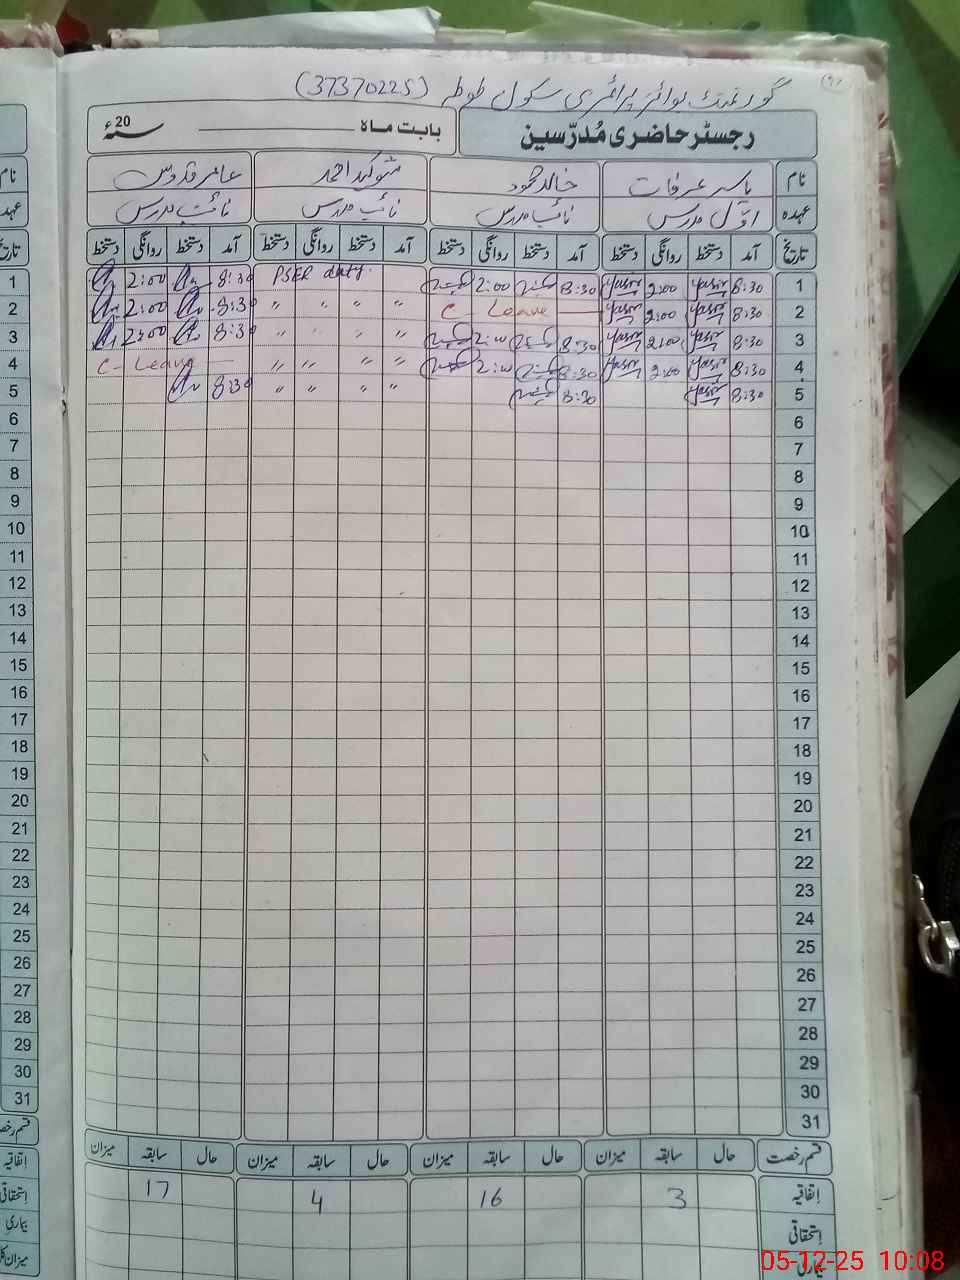 گورنمنٹ بوائز پرائمری سکول طوطہ (37370225)
رجسٹر حاضری مُدرّسین
بابت ماہ ـــــــ 20 سنہء
نام یاسر عرفات خالد محمود شوکت احمد عامر قدوس
عہدہ اوّل مدرس نائب مدرس نائب مدرس نائب مدرس
تاریخ آمد دستخط روانگی دستخط آمد دستخط روانگی دستخط آمد دستخط روانگی دستخط آمد دستخط روانگی دستخط
1 8:30 Yasir 2:00 Yasir 8:30 2:00 PSER duty. 8:30 2:00 1
2 8:30 Yasir 2:00 Yasir C- Leave " " " " 8:30 2:00 2
3 8:30 Yasir 2:00 Yasir 8:30 2:00 " " " " 8:30 2:00 3
4 8:30 Yasir 2:00 Yasir 8:30 2:00 " " " " C- Leave 4
5 8:30 Yasir 8:30 " " " " 8:30 5
6 6
7 7
8 8
9 9
10 10
11 11
12 12
13 13
14 14
15 15
16 16
17 17
18 18
19 19
20 20
21 21
22 22
23 23
24 24
25 25
26 26
27 27
28 28
29 29
30 30
31 31
قسم رخصت حال سابقہ میزان حال سابقہ میزان حال سابقہ میزان حال سابقہ میزان
اِتفاقیہ 3 16 4 17
اِستحقاقی
بیماری
05-12-25 10:08
نام
عہدہ
تاریخ
قسم رخصت
اِتفاقیہ
اِستحقاقی
بیماری